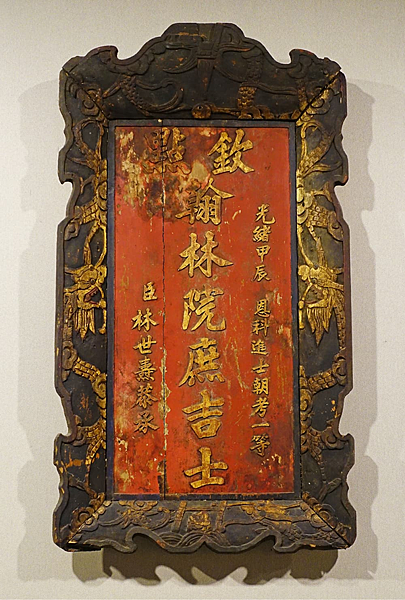 欽點
光緒甲辰 恩科進士朝考一等
翰林院庶吉士
臣 林世燾恭承